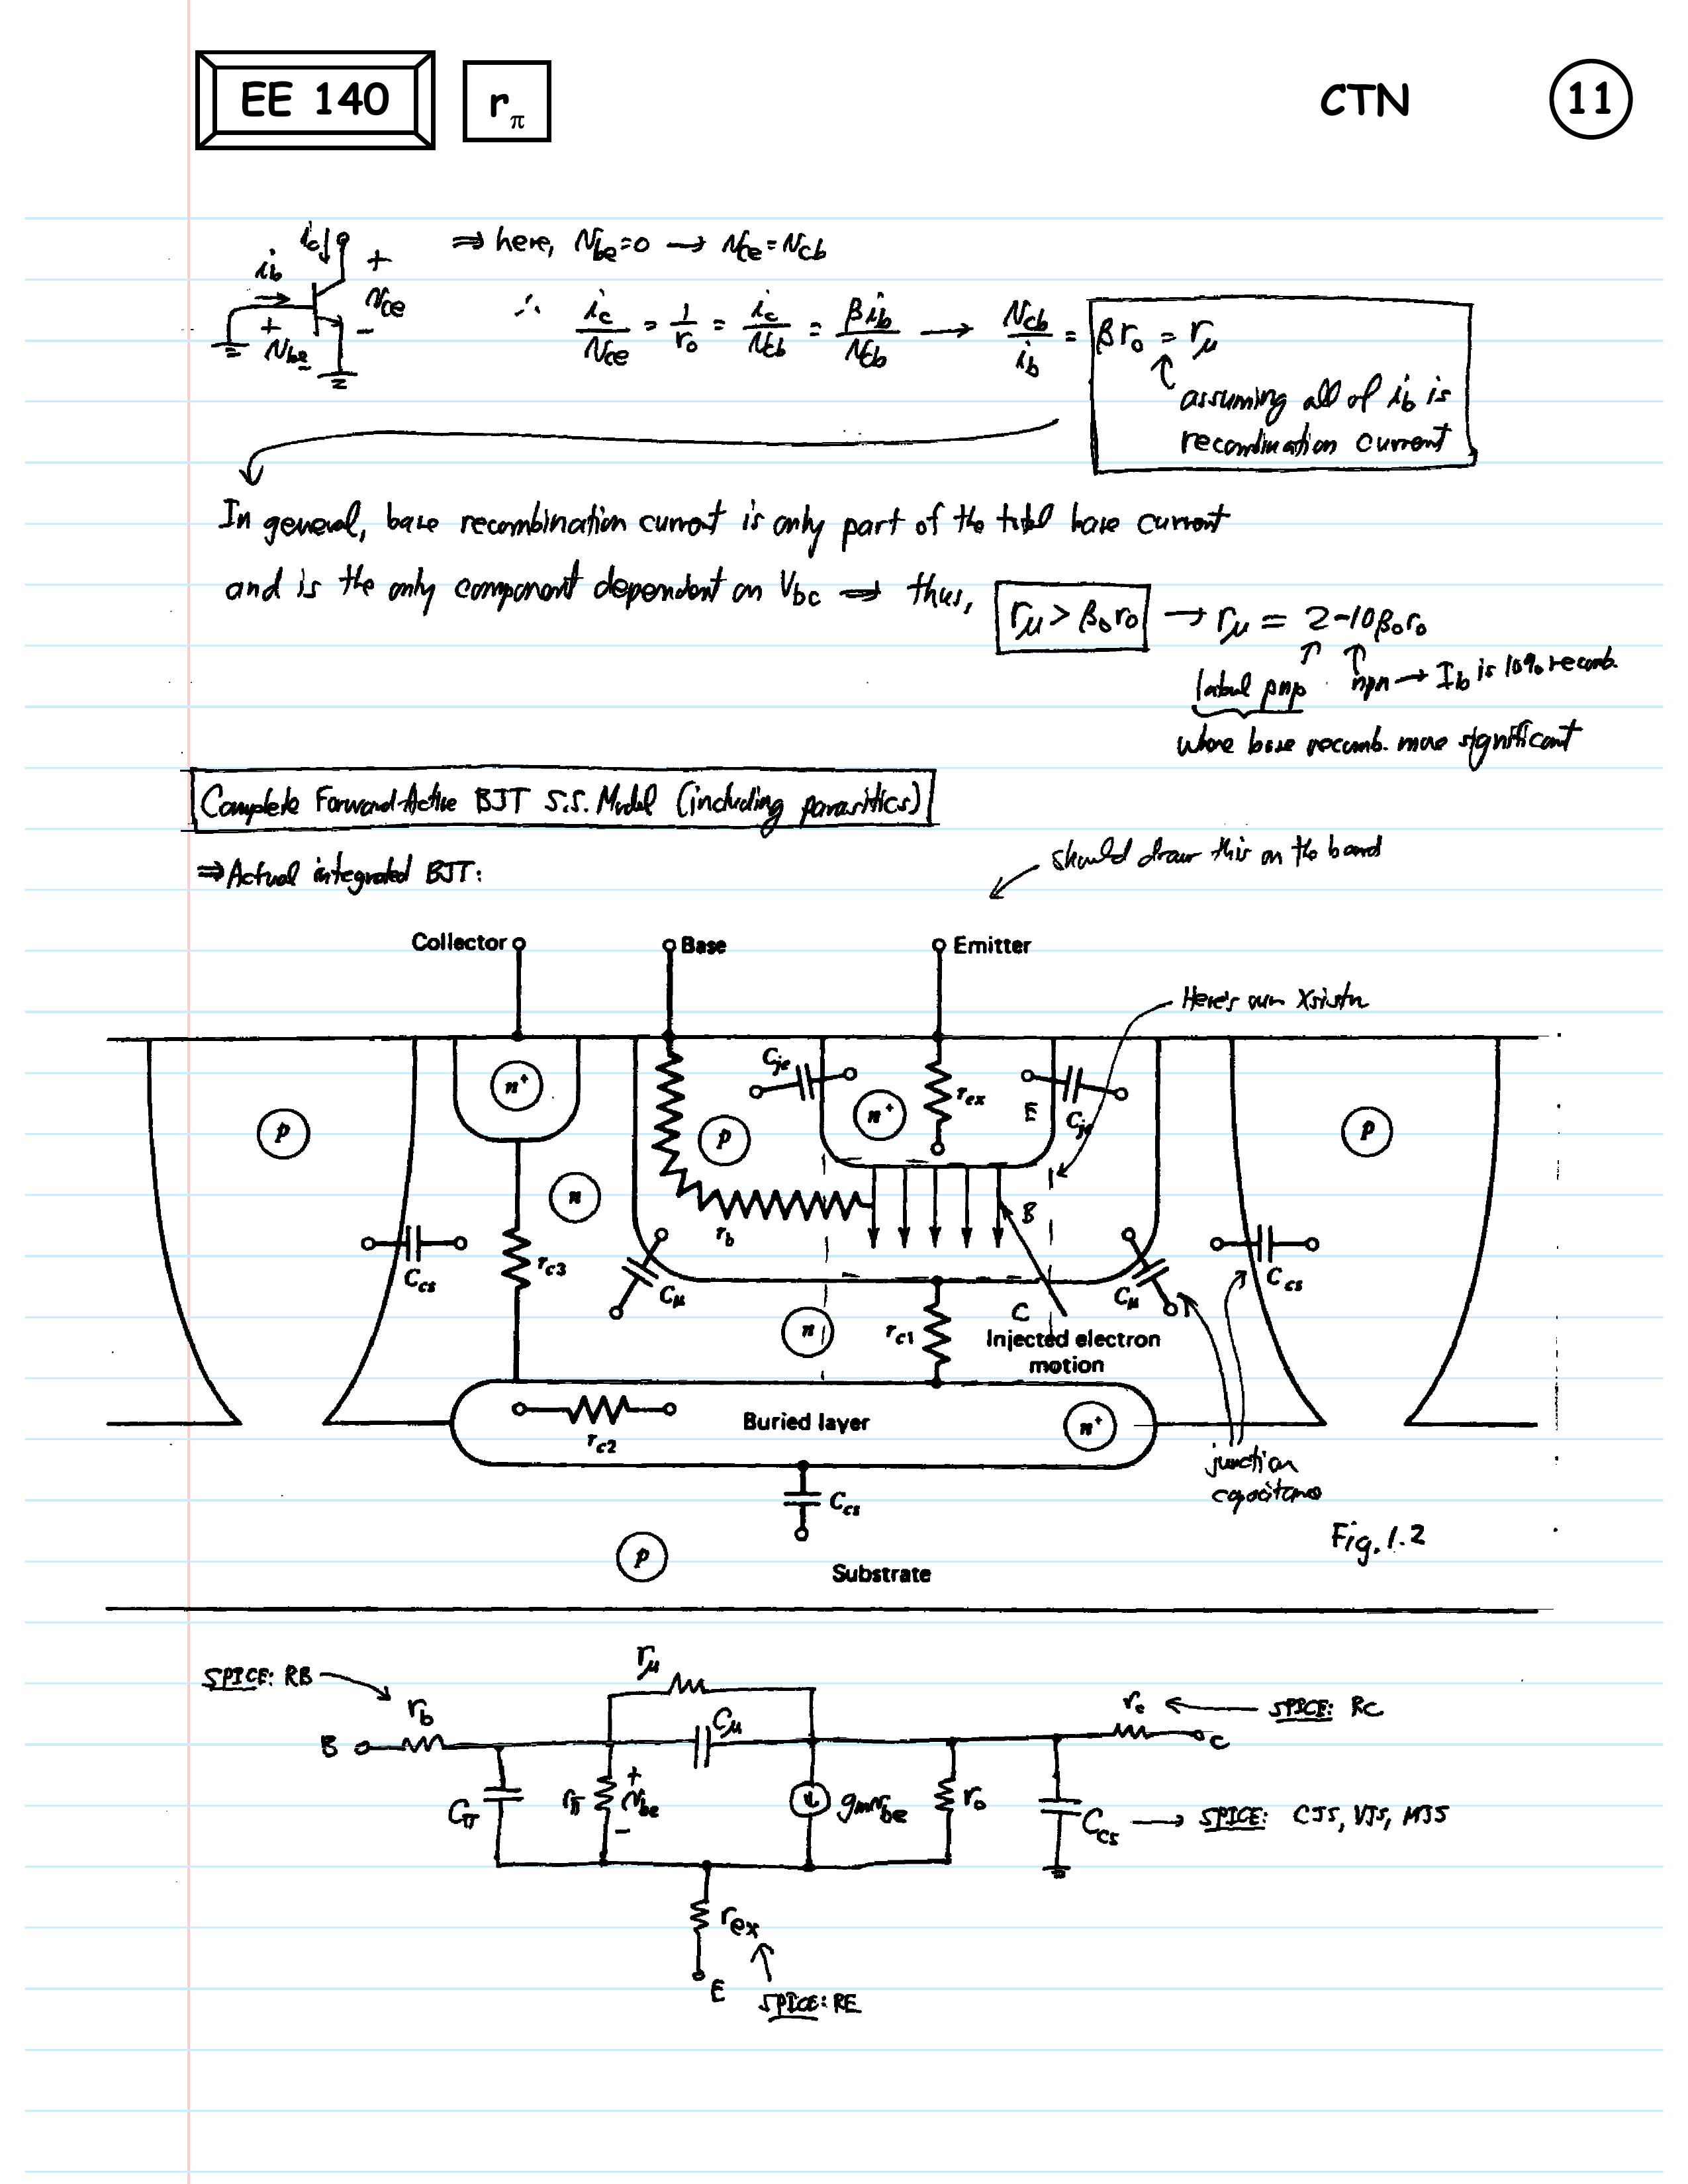 EE 140 rπ CTN 11
ic + ⇒ here, vbe=0 → vce=vcb
ib vce
+ vbe − −
∴ ic/vce = 1/ro = ic/vcb = βib/vcb → vcb/ib = βro = rμ
assuming all of ib is
recombination current
In general, base recombination current is only part of the total base current
and is the only component dependent on Vbc ⇒ thus, rμ > βoro → rμ = 2-10βoro
lateral pnp npn → Ib is 10% recomb.
where base recomb. more significant
Complete Forward-Active BJT S.S. Model (including parasitics)
⇒ Actual integrated BJT:
should draw this on the board
Collector Base Emitter
Here's our Xsistor
n+ Cje n+ rex E Cje
p p p
n B
rb
Ccs rc3 Cμ Cμ Ccs
n rc1 C
Injected electron
motion
rc2 Buried layer n+
junction
capacitance
Ccs
Fig. 1.2
p Substrate
SPICE: RB rμ
rb Cμ rc ← SPICE: RC
B C
Cπ rπ + vbe − gmvbe ro Ccs → SPICE: CJS, VJS, MJS
rex
E SPICE: RE